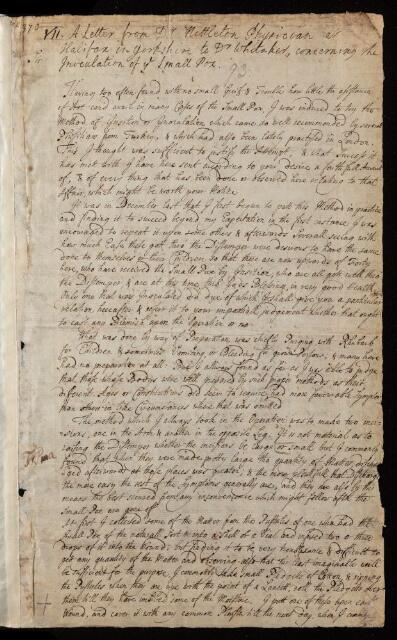 VII. A Letter from Dr Nettleton Physician at
Halifax in Yorkshire to Dr Whitaker, concerning the
Inoculation of ye Small Pox.
Having too often found with no small Grief & Trouble how little the assistance
of Art could avail in many Cases of the Small Pox, I was induced to try the
Method of Insition or Inoculation which came so well recommended by several
Physitians from Turkey, & which had also been lately practised in London.
This I thought was sufficient to justify the Attempt, & what Success it
has met with I have here sent according to your desire a faithfull Account
of, & of every thing that has been done or observed here in relation to that
Affair, which might be worth your Notice.
It was in December last that I first begun to put this Method in practice
and finding it to succeed beyond my Expectation in the first instance I was
encouraged to repeat it upon some others & afterwards Several seeing with
how much Ease these got thro the Distemper were desirous to have the same
done to themselves or their Children. So that there are now upwards of Forty
here, who have received the Small Pox by Insition, who are all got well thro
the Distemper & are at this time thro Gods Blessing, in very good Health.
Only one that was inoculated did dye of which I shall give you a particular
relation hereafter & refer it to your impartial judgement whether that ought
to cast any Blemish upon the Operation or no.
What was done by way of Preparation was chiefly Purging with Rhubarb
for Children & sometimes Vomiting or Bleeding for grown Persons, & many have
had no preparation at all. But I always found as far as I was able to judge
that those whose Bodies were well prepared by such proper methods as their
different Ages or Constitutions did seem to require had more favourable Symptoms
than others in like Circumstances where that was omitted.
The method which I always took in the Operation was to make two inci-
sions, one in the Arm & another in the opposite Leg. It is not material as to
raising the Distemper whether the incisions be large or small but I commonly
found that when they were made pretty large the quantity of Matter discharg
ged afterwards at those places was greater, & the more plentifull that Discharge
the more easy the rest of the Symptoms generally are, and they are also by this
means the best secured from any inconvenience which might follow after the
Small Pox are gone off.
At first I collected some of the Matter from the Pustules of one who had the
Small Pox of the natural Sort into a Shell or a Vial and infused two or three
drops of it into the Wounds, but finding it to be very troublesome & difficult to
get any quantity of the Matter and observing also that the least imaginable will
be sufficient for the purpose, I commonly take Small Pledgets of Cotton, & ripening
the Pustules when they are ripe with the point of a Lancett, roll the Pledgets over
them till they have imbibed some of the Moisture. I putt one of these upon each
Wound, and cover it with any common Plaister till the next day when I commonly